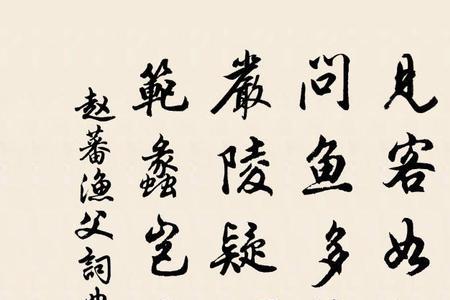 见客如
问鱼多
嚴陵疑
範蠡豈
赵蕃漁父詞